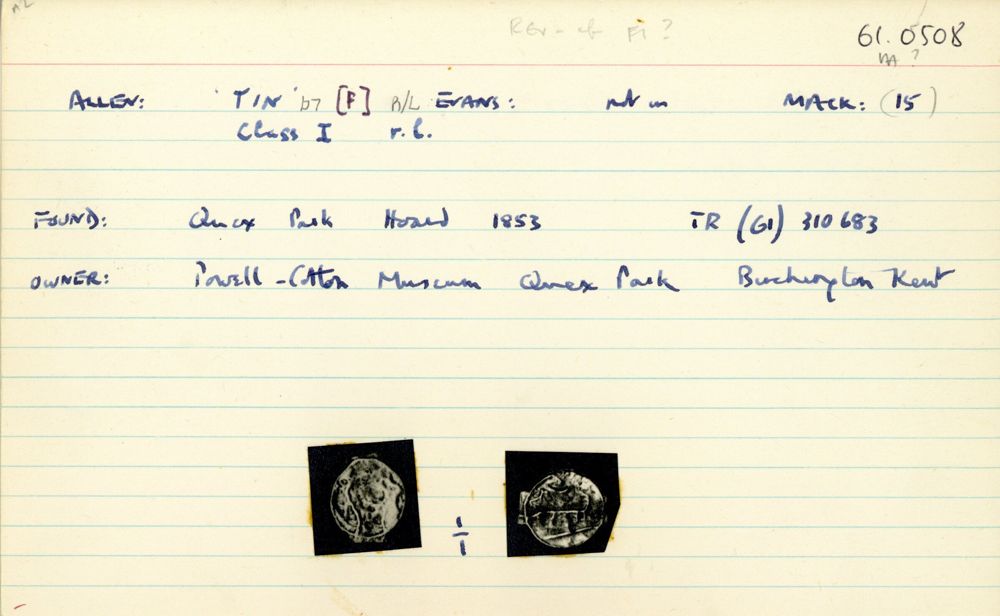 Rev- of F1 ?
61.0508
ALLEN: 'TIN' b7 [F] R/L EVANS: not in MACK: (15)
Class I r.b.
FOUND: Quex Park Hoard 1853 TR (61) 310 683
OWNER: Powell-Cotton Museum Quex Park Birchington Kent
1/1